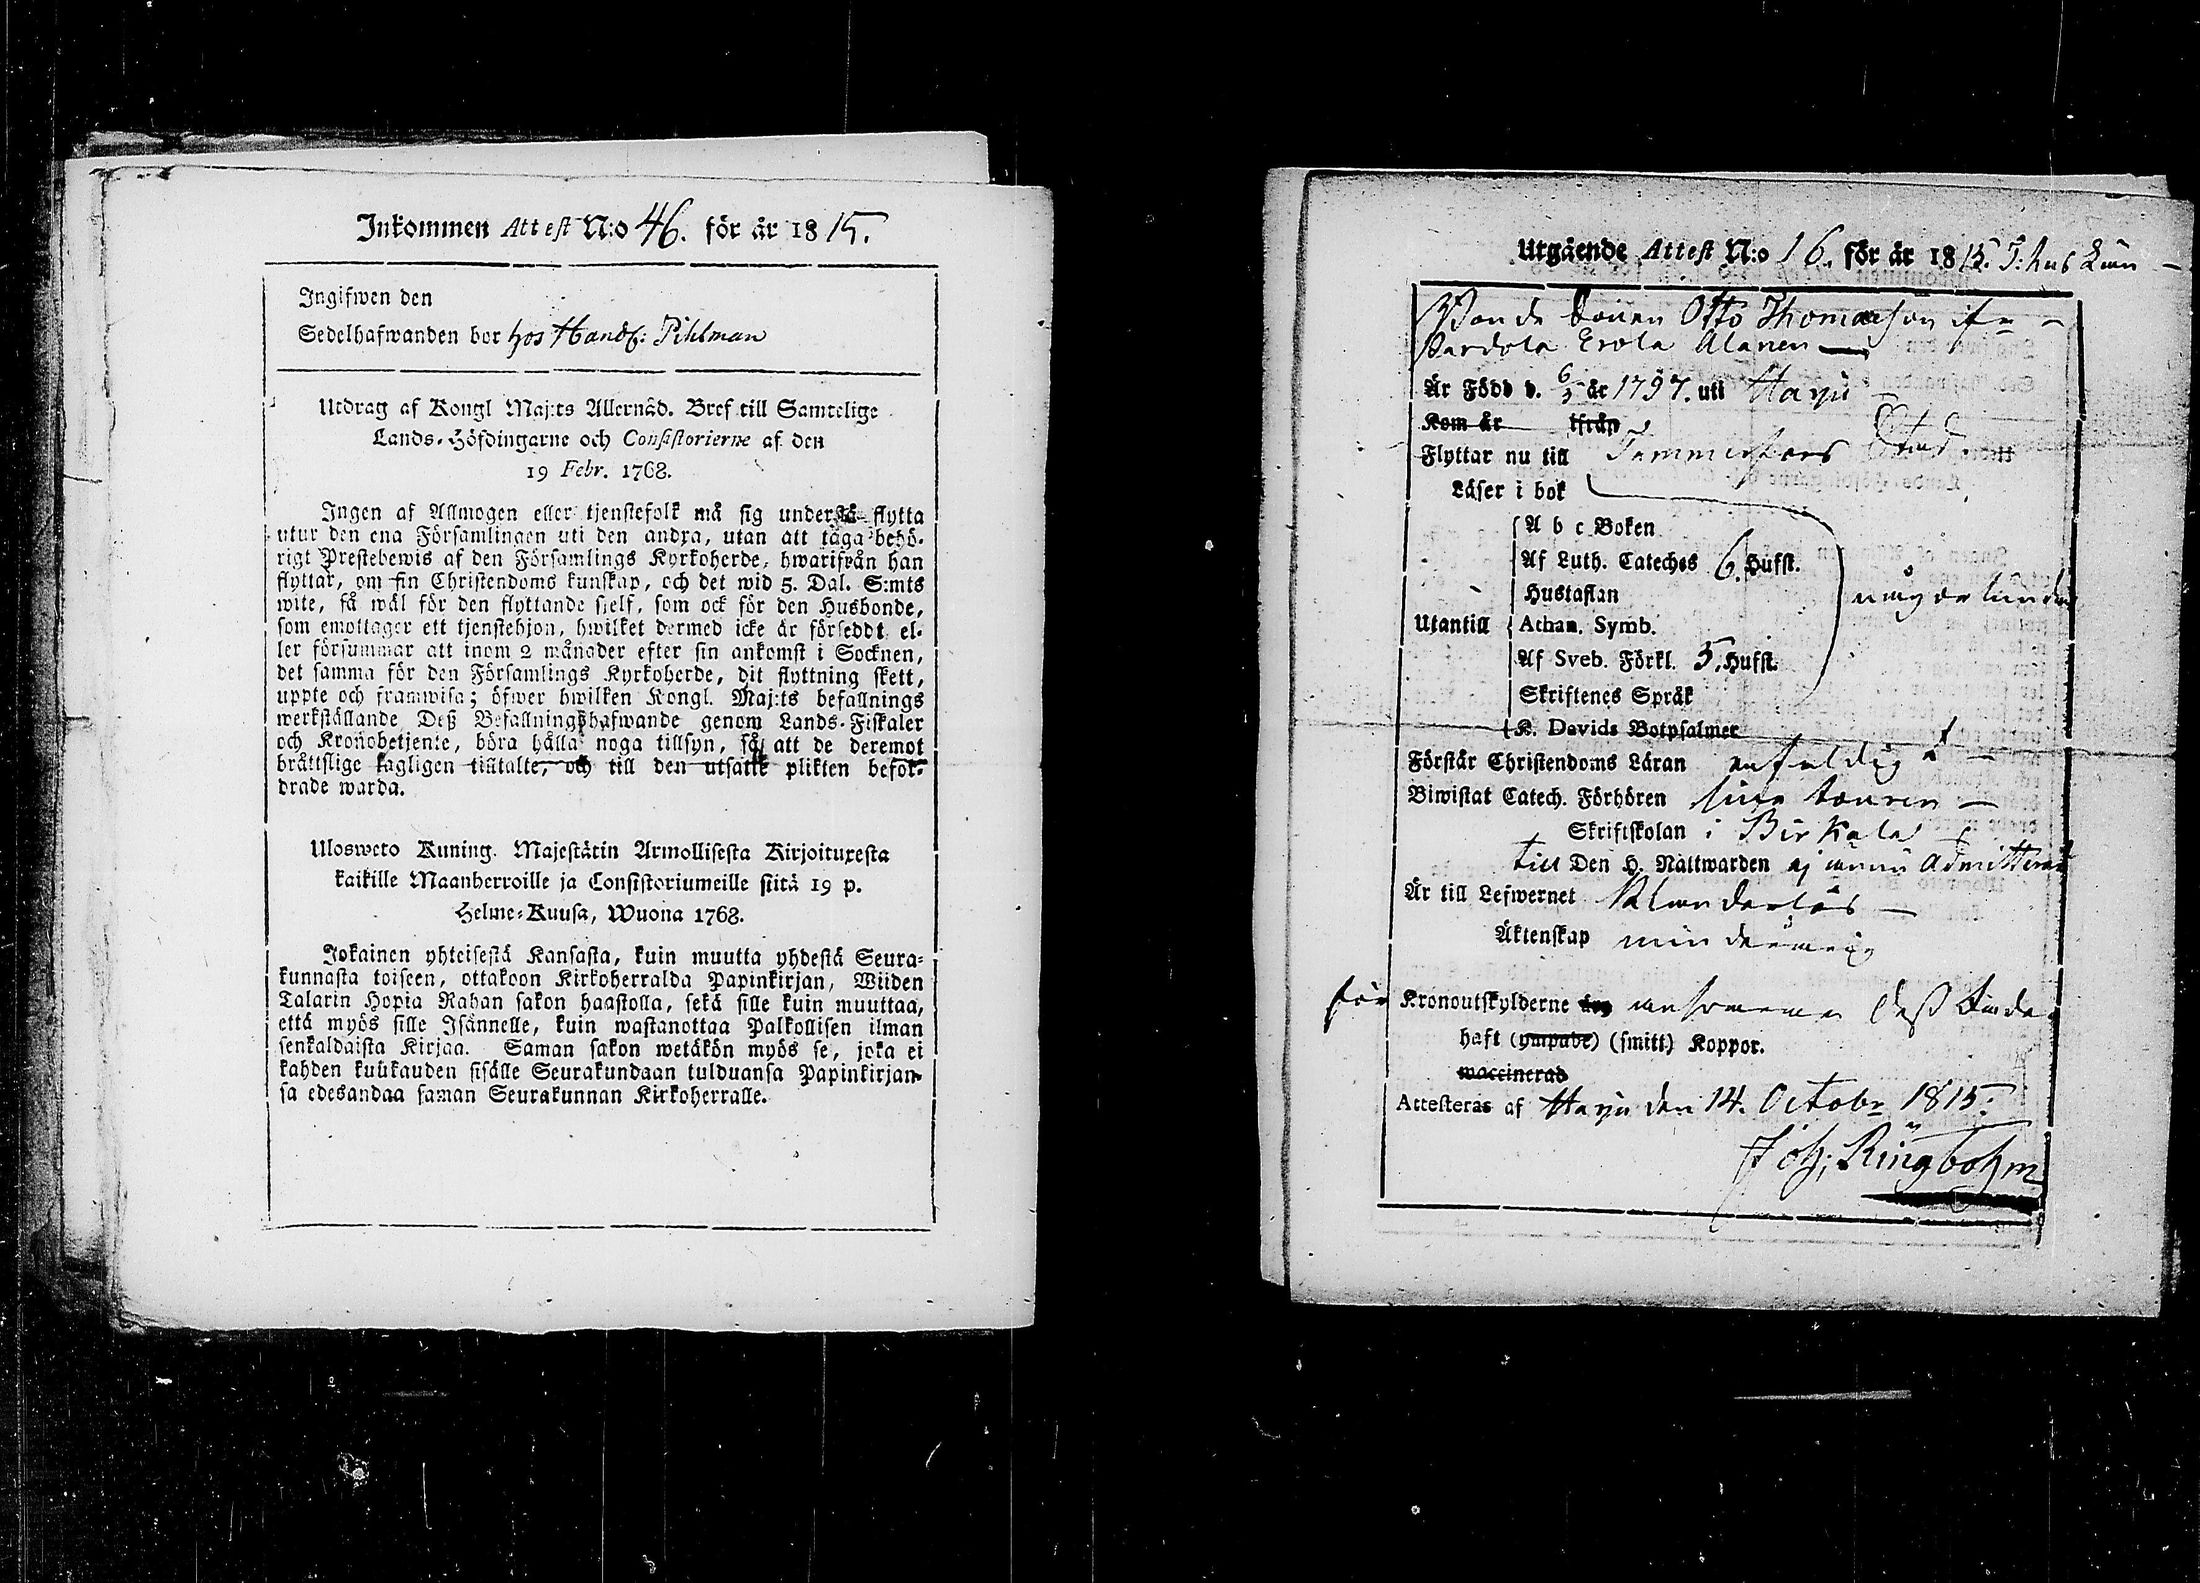 Inkommen Attest N:o 46. för år 1815.
Ingifwen den
Sedelhafwanden bor hos Handl: Pihlman
Utdrag af Kongl Maj:ts Allernåd. Bref till Samtelige
Lands-Höfdingarne och Consistorierne af den
19 Febr. 1768.
Ingen af Allmogen eller tjenstefolk må sig understå flytta
utur den ena Församlingen uti den andra, utan att taga behö-
rigt Prestebewis af den Församlings Kyrkoherde, hwarifrån han
flyttar, om sin Christendoms kunskap, och det wid 5. Dal. S:mts
wite, så wäl för den flyttande sjelf, som ock för den Husbonde,
som emottager ett tjenstehjon, hwilket dermed icke är försedt el-
ler försummar att inom 2 månader efter sin ankomst i Socknen,
det samma för den Församlings Kyrkoherde, dit flyttning skett,
uppte och framwisa; öfwer hwilken Kongl. Maj:ts befallnings
werkställande Deß Befallningshafwande genom Lands-Fiskaler
och Kronobetjente, böra hålla noga tillsyn, så att de deremot
bråttslige lagligen tilltalte, och till den utsatte plikten befor-
drade warda.
Ulosweto Kuning. Majestätin Armollisesta Kirjoituxesta
kaikille Maanherroille ja Consistoriumeille siitä 19 p.
Helme-Kuusa, Wuona 1768.
Jokainen yhteisestä Kansasta, kuin muutta yhdestä Seura-
kunnasta toiseen, ottakoon Kirkoherralda Papinkirjan, Wiiden
Talarin Hopia Rahan sakon haastolla, sekä sille kuin muuttaa,
että myös sille Isännelle, kuin wastanottaa Palkollisen ilman
senkaldaista Kirjaa. Saman sakon wetäkön myös se, joka ei
kahden kuukauden sisälle Seurakundaan tulduansa Papinkirjan-
sa edesandaa saman Seurakunnan Kirkoherralle.
Utgående Attest N:o 16. för år 1815. T:hus Län
Bonde Sonen Otto Thomasson ifr
Pardola Erola Alanen
Är Född d. 6/3 år 1797. uti Harju
Kom år ifrån
Flyttar nu till Tammerfors Stad.
Läser i bok
A b c Boken
Af Luth. Cateches 6. Hufst.
Hustaflan någorlunda
Utantill Athan. Symb.
Af Sveb. Förkl. 5. Hufst.
Skriftenes Språk
K. Davids Botpsalmer
Förstår Christendoms Läran enfeldigt
Biwistat Catech. Förhören sine
Skriftskolan i Birkala
till Den H. Nattwarden ej ännu admitterad
Är till Lefwernet klanderlös
Äktenskap minderårig
för Kronoutskylderne
haft (ympade) (smitt) Koppor.
waccinerad
Attesteras af Harju den 14. Octobr 1815.
Joh: Ringbohm